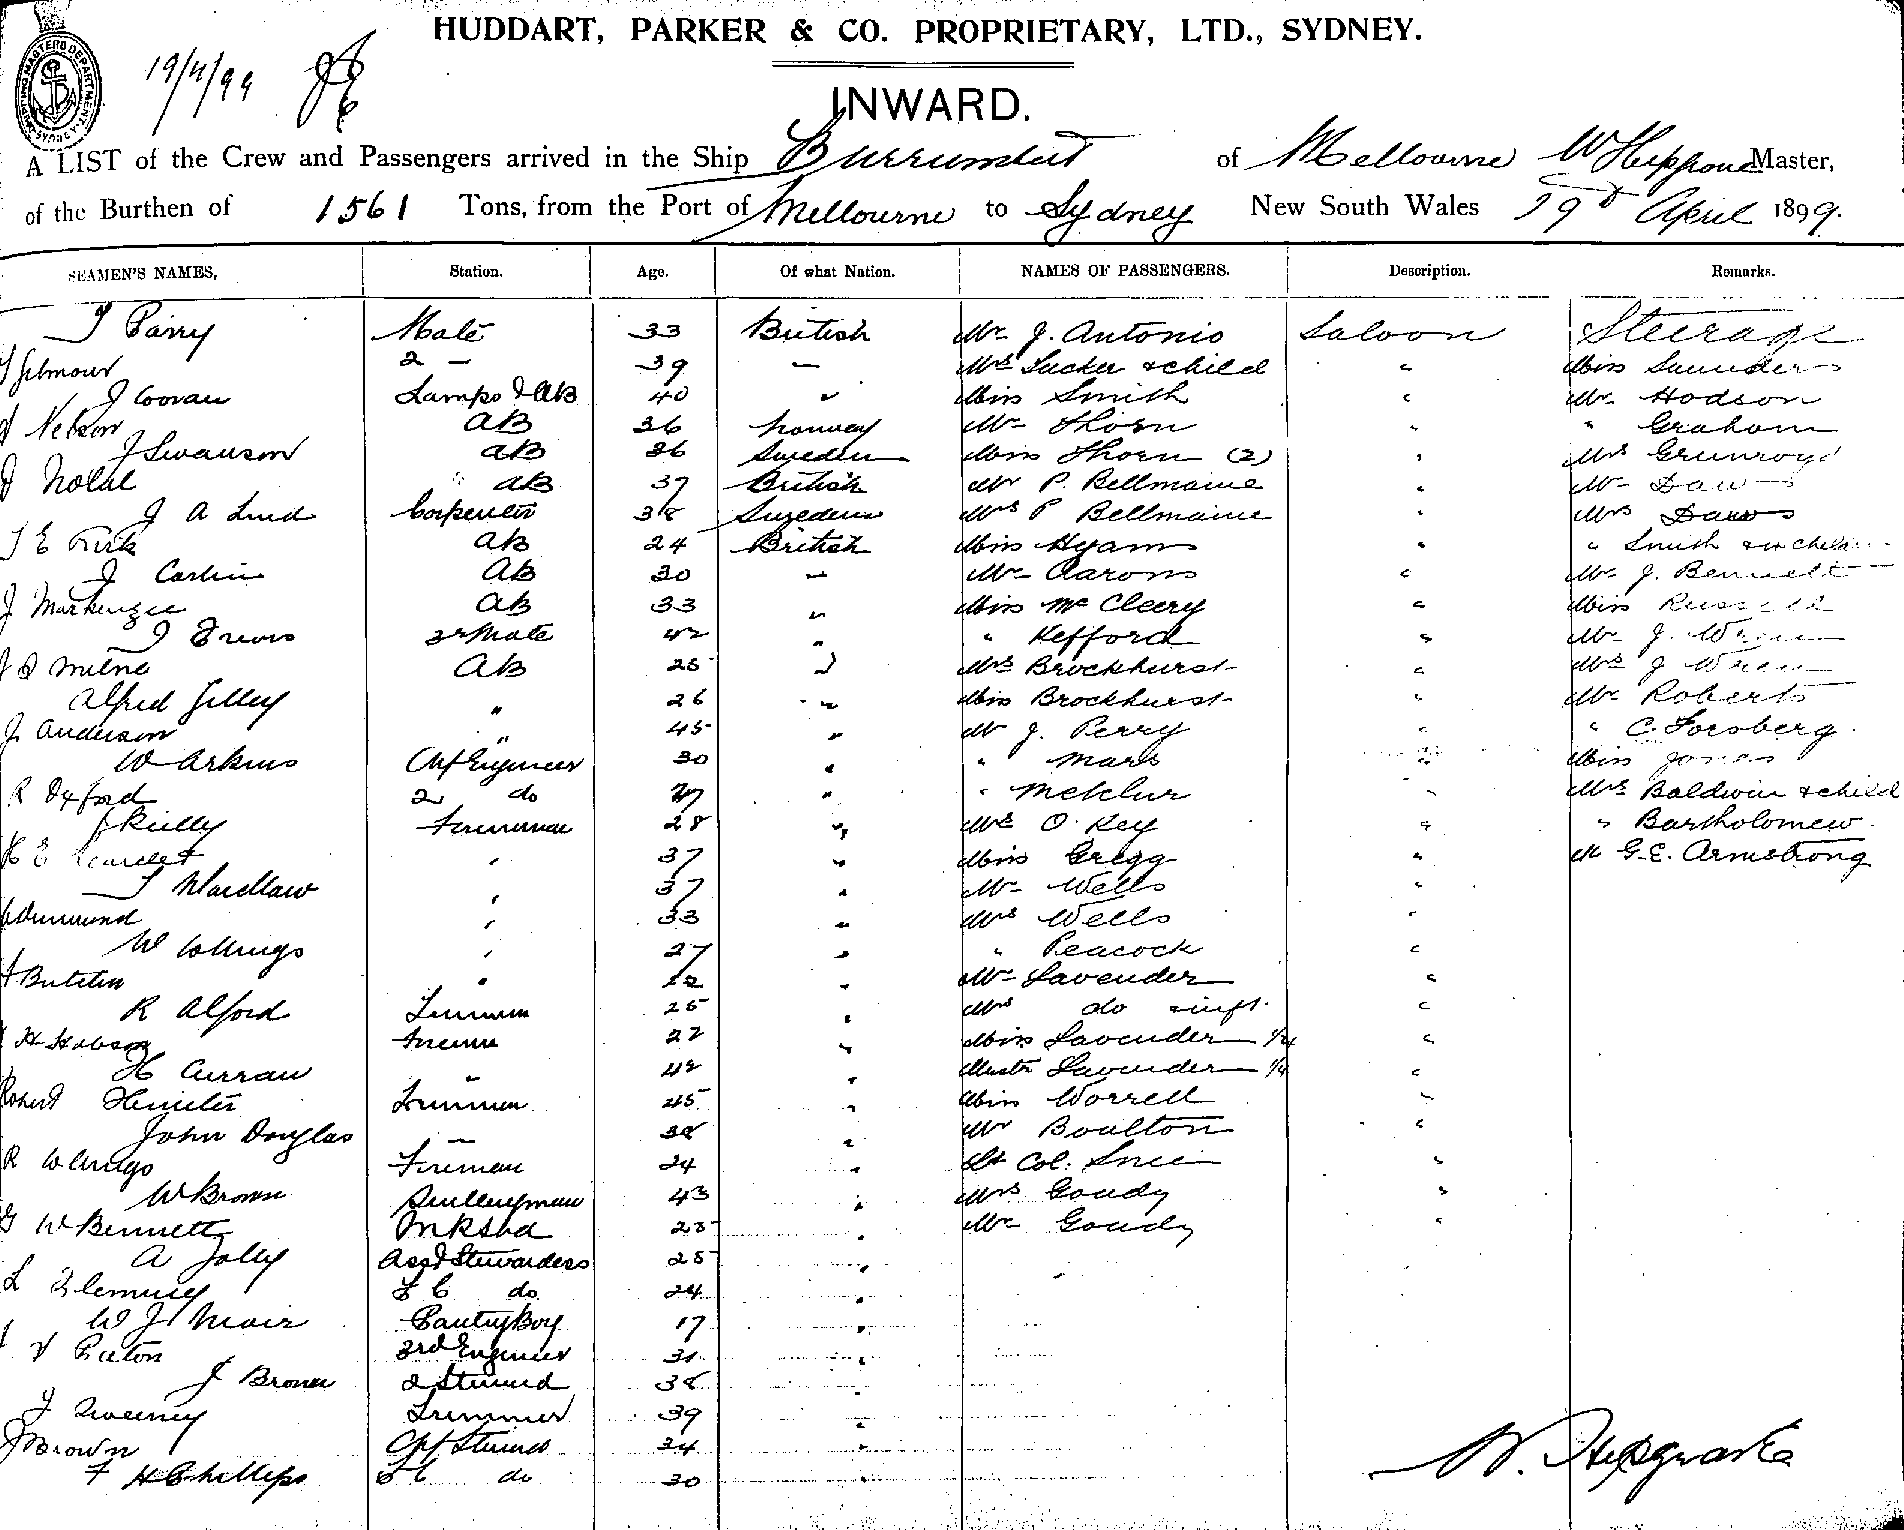 HUDDART, PARKER & CO. PROPRIETARY, LTD., SYDNEY.
19/4/99
INWARD.
A LIST of the Crew and Passengers arrived in the Ship Burrumbeet of Melbourne W Master,
of the Burthen of 1561 Tons, from the Port of Melbourne to Sydney New South Wales 19th April 1899.
SEAMEN'S NAMES, Station. Age. Of what Nation. NAMES OF PASSENGERS. Description. Remarks.
Parry Mate 33 British Mr J. Antonio Saloon Steerage
Gilmour 2 — 39 — Mrs Tucker & child " Miss Saunders
J Coovan Lamps & AB 40 " Miss Smith " Mr Hodson
Nelson AB 36 Norway Mr Thorn " " Graham
J Swanson AB 26 Sweden Miss Thorn (2) " Mrs
AB 37 British Mr P. Bellmaine " Mr Daws
J A Lund Carpenter 38 Sweden Mrs P Bellmaine " Mrs Daws
E Kirk AB 24 British Miss Hyams " " Smith
J Carlin AB 30 — Mr Aarons " Mr J. Bennett
J Mackenzie AB 33 " Miss McCleery " Miss Russell
3r Mate 42 " " Kefford " Mr J. Wren
Milne AB 25 " Mrs Brockhurst " Mrs J Wren
Alfred Jelley " 26 " Miss Brockhurst " Mr Roberts
J. Anderson " 45 " Mr J. Perry " " C. Forsberg
W Arkins Chf Engineer 30 " " Mars " Miss Jones
R Oxford 2 do " " " Mrs Baldwin & child
J Reilly Fireman 28 " Mrs O. Key " " Bartholomew
H E " 37 " Miss Gregg " Mr G.E. Armstrong
Wardlaw " 37 " Mr Wells "
" 33 " Mrs Wells "
W Collings " 27 " " Peacock "
" " Mr Lavender "
R Alford Trimmer 25 " Mrs do inft. "
H Hobson Fireman 27 " Miss Lavender 1/4 "
H Curran " 42 " Mastr Lavender 1/4 "
Robert Hunter Trimmer 45 " Miss Worrell "
John Douglas — 38 " Mr Boulton "
R Collings Fireman 24 " Lt Col. "
W Brown Sculleryman 43 " Mrs Goudy "
W Bennett 23 " Mr Goudy "
A Jolly Asst Stewardess 25 "
L Flemming F C do 24 "
W J Moir Pantry Boy 17 "
3rd Engineer 31 "
J Brown 2 Steward 38 "
J Sweeney Trimmer 39 "
J Brown Chf Steward 34 "
F H Phillips F C do 30 "